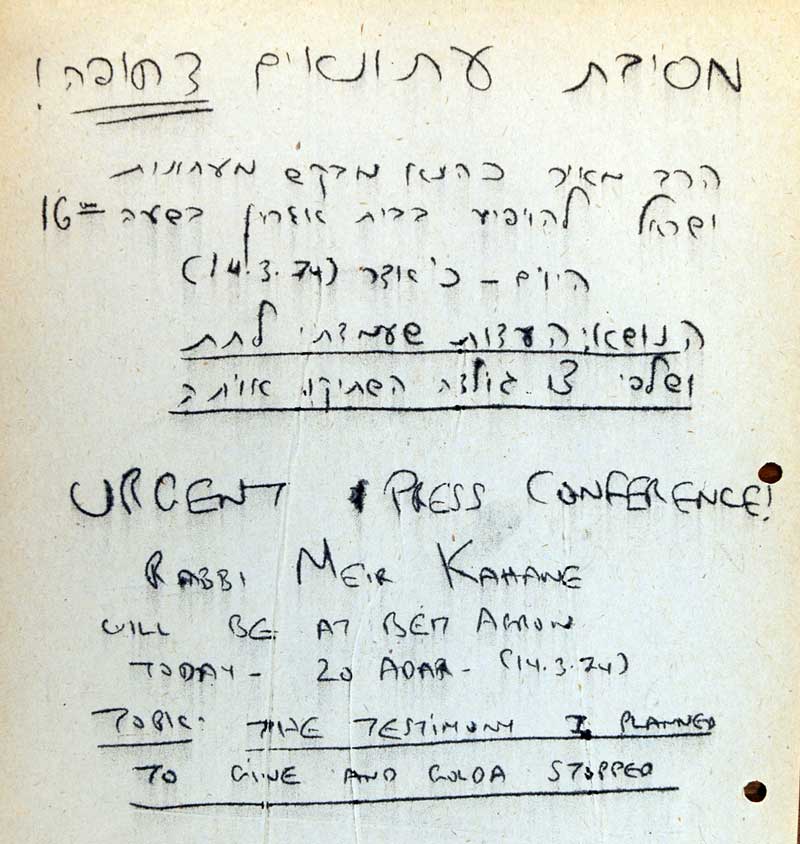 מסיבת עתונאים דחופה!
הרב מאיר כהנא מבקש מעתונות
ישראל להופיע בבית אגרון בשעה 16⁰⁰
היום – כ' אדר (14.3.74)
הנושא: העדות שעמדתי לתת
ושלפי צו גולדה השתיקו אותה
URGENT PRESS CONFERENCE!
RABBI MEIR KAHANE
WILL BE AT BEIT AGRON
TODAY - 20 ADAR - (14.3.74)
TOPIC: THE TESTIMONY I PLANNED
TO GIVE AND GOLDA STOPPED